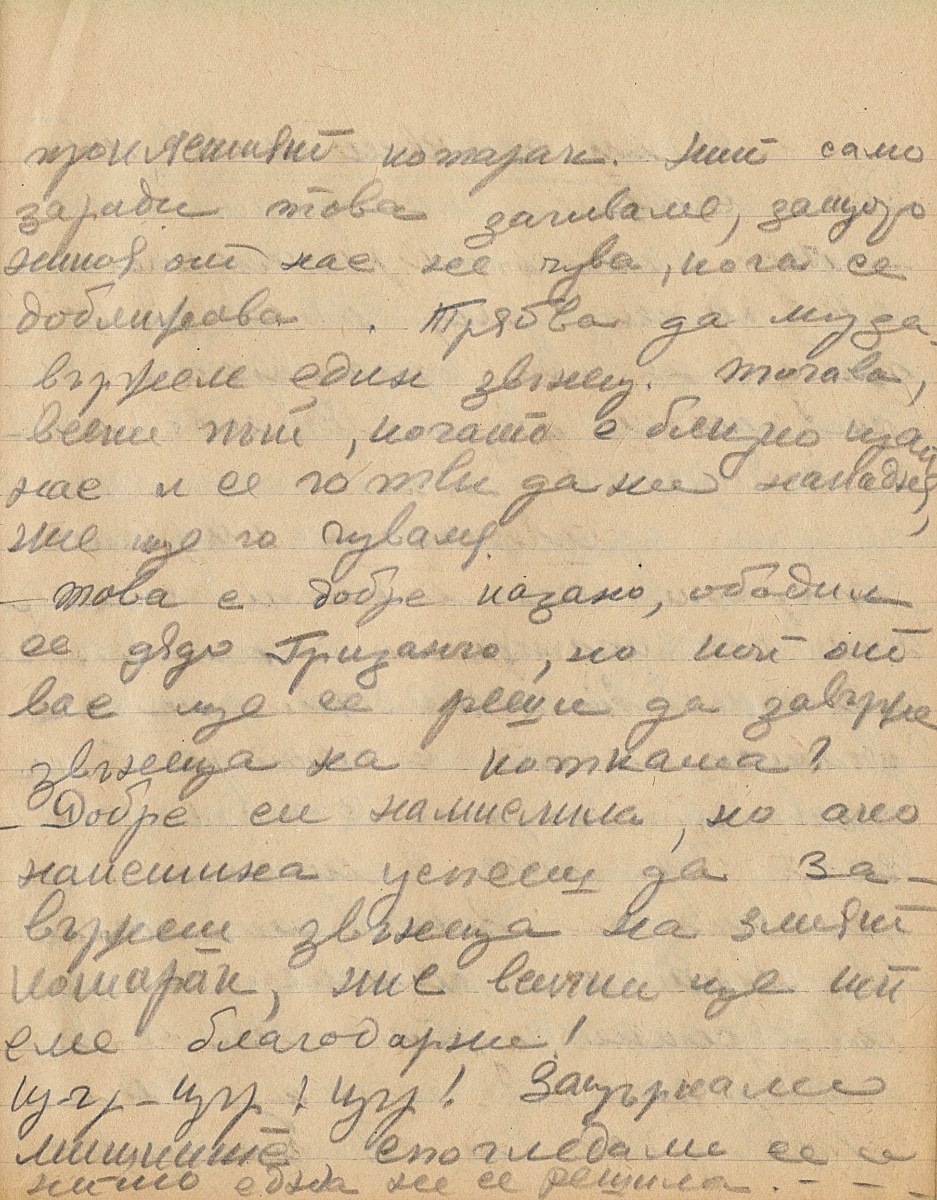 проклетият котарак. Ний само
заради това загиваме, защото
никой от нас не чува, кога се
доближава. Трябва да му за-
вържем един звънец. Тогава,
всеки път, когато е близко край
нас и се готви да ни нападне,
ние ще го чуваме.
- Това е добре казано, обадил
се дядо Гризанчо, но кой от
вас ще се реши да завърже
звънеца на котката?
- Добре си намислила, но ако
наистина успееш да за-
вържеш звънеца на злият
котарак, ние всички ще ти
сме благодарни!
Цър-цър! цър! Зацъркали
мишките спогледали се и
нито една не се решила. - - -